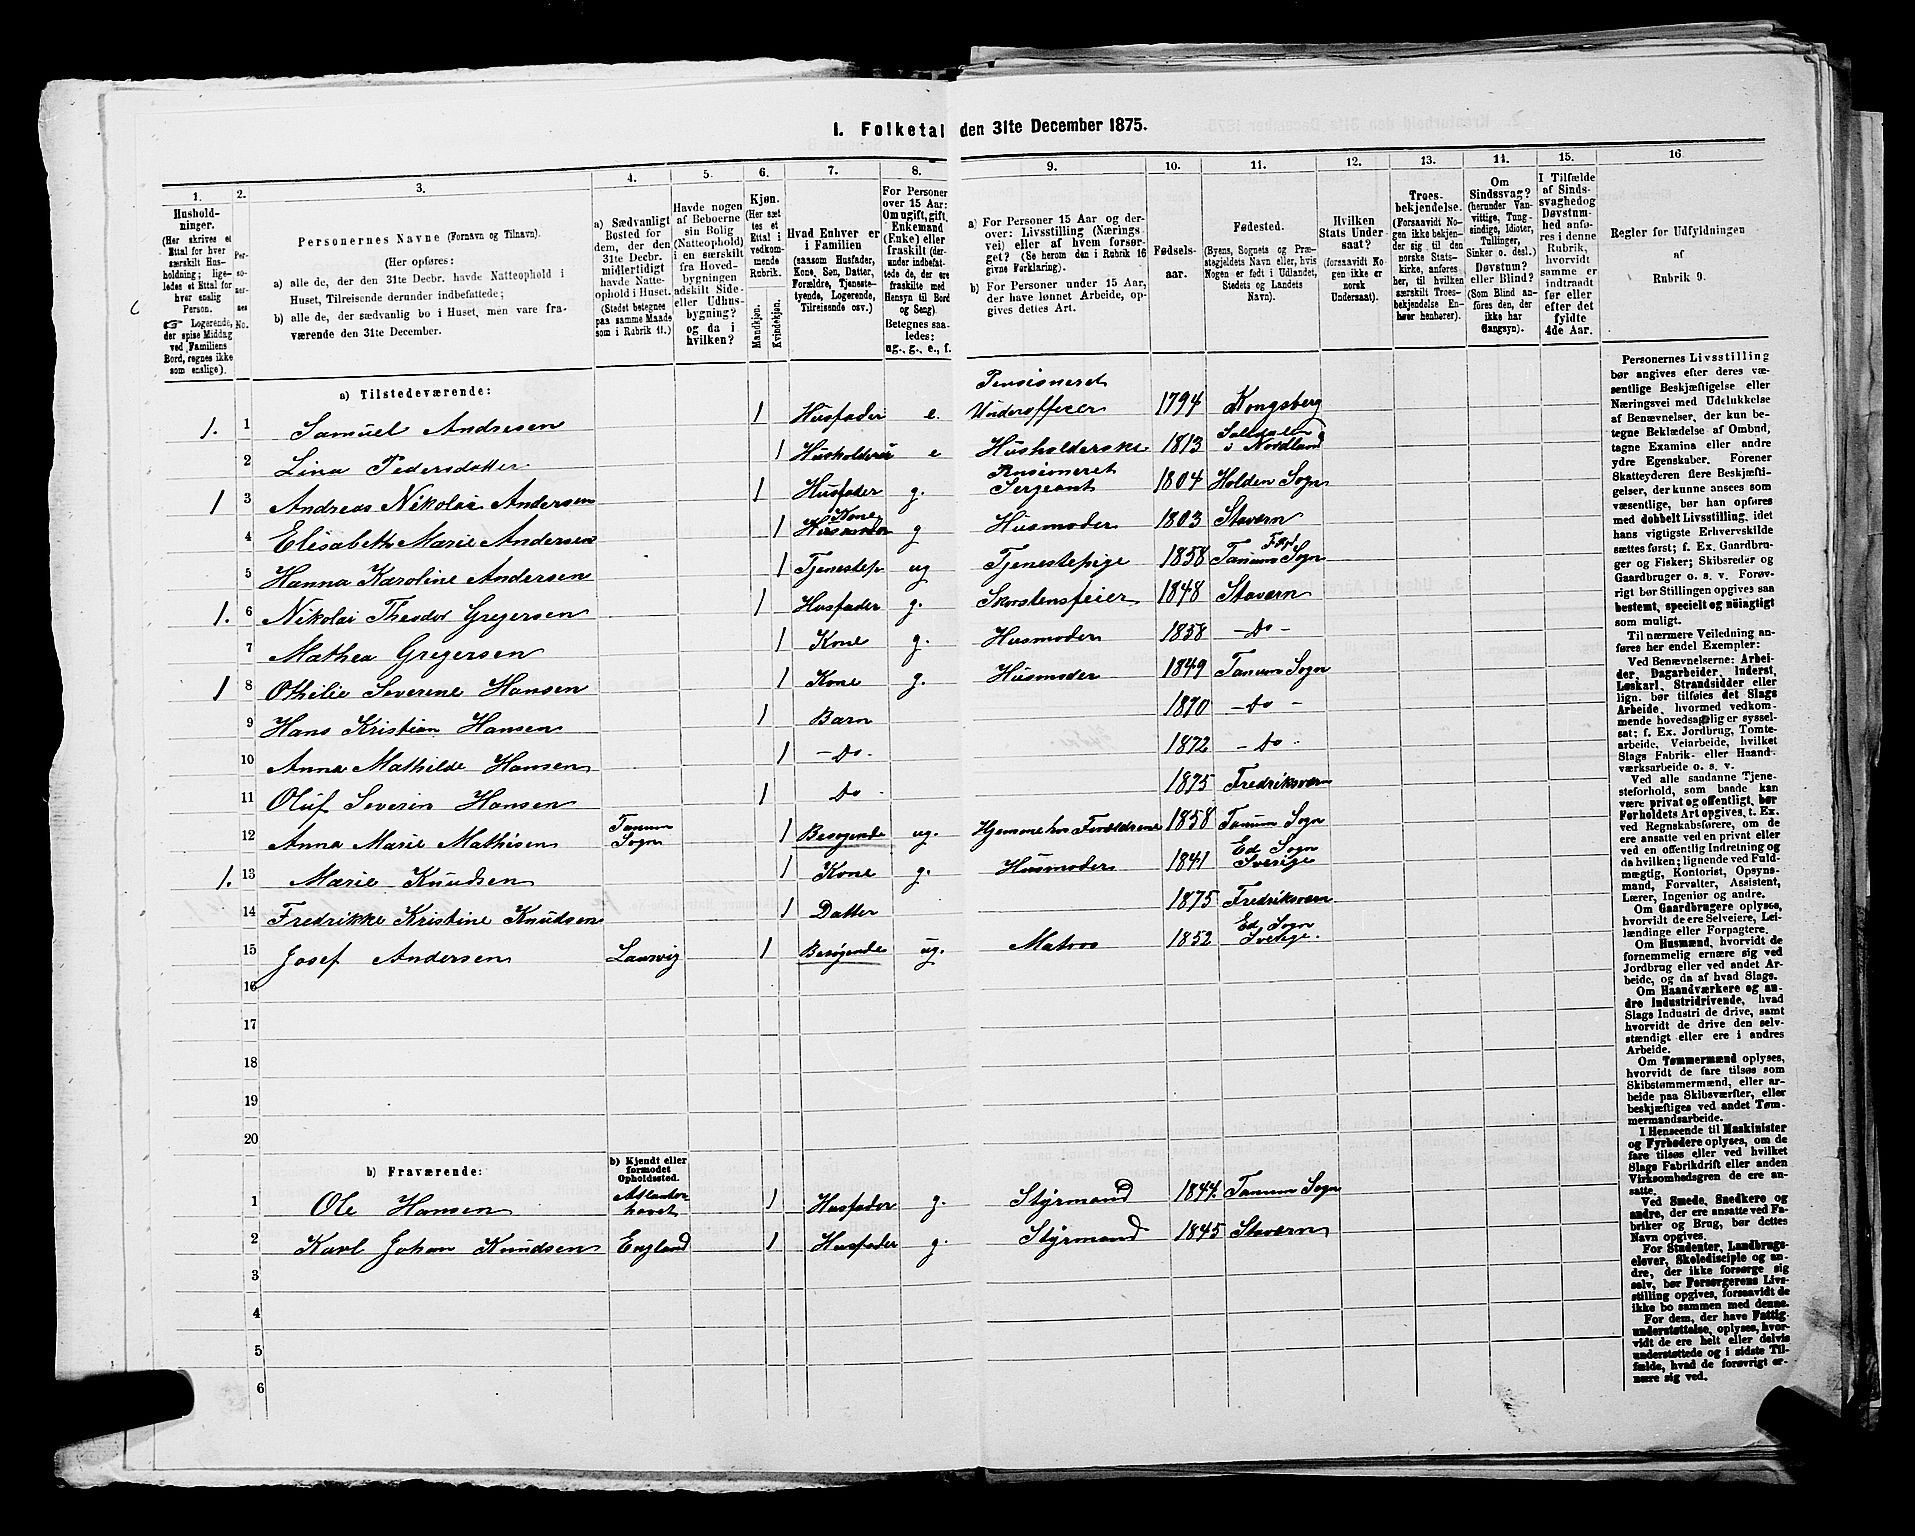 1. Folketal den 31te December 1875.
1. 2. 3. 4. 5. 6. 7. 8. 9. 10. 11. 12. 13. 14. 15. 16
Husholdninger.
(Her skrives et
Ettal for hver
særskilt Husholdning;
ligeledes et Ettal for
hver enslig
Person.
☞ Logerende,
der spise Middag
ved Familiens
Bord, regnes ikke
som enslige).
Personernes No.
Personernes Navne (Fornavn og Tilnavn).
(Her opføres:
a) alle de, der den 31te Decbr. havde Natteophold i
Huset, Tilreisende derunder indbefattede;
b) alle de, der sædvanlig bo i Huset, men vare fraværende
den 31te December.
a) Sædvanligt
Bosted for
dem, der den
31te Decbr.
midlertidigt
havde Natteophold
i Huset.
(Stedet betegnes
paa samme Maade
som i Rubrik 11.)
Havde nogen
af Beboerne
sin Bolig
(Natteophold)
i en særskilt
fra Hovedbygningen
adskilt Side-
eller Udhusbygning?
og da i
hvilken?
Kjøn.
(Her sæt
et Ettal i
vedkommende
Rubrik.
Mandkjøn.
Kvindekjøn.
Hvad Enhver er
i Familien
(saasom Husfader,
Kone, Søn, Datter,
Forældre, Tjenestetyende,
Logerende,
Tilreisende osv.)
For Personer
over 15 Aar:
Om ugift, gift,
Enkemand
(Enke) eller
fraskilt (derunder
indbefattede
de, der ere
fraskilte med
Hensyn til Bord
og Seng)
Betegnes saaledes:
ug., g., e., f.
a) For Personer 15 Aar og derover:
Livsstilling (Næringsvei)
eller af hvem forsørget?
(Se herom den i Rubrik 16
givne Forklaring).
b) For Personer under 15 Aar,
der have lønnet Arbeide, opgives
dettes Art.
Fødselsaar.
Fødested.
(Byens, Sognets og Præstegjeldets
Navn eller, hvis
Nogen er født i Udlandet,
Stedets og Landets
Navn).
Hvilken
Stats Undersaat?
(forsaavidt Nogen
ikke er
norsk
Undersaat).
Troesbekjendelse.
(Forsaavidt Nogen
ikke bekjender
sig til den
norske Statskirke,
anføres
her, til hvilken
særskilt Troesbekjendelse
Enhver
henhører).
Om
Sindssvag?
(herunder Vanvittige,
Tungsindige,
Idioter,
Tullinger,
Sinker o. desl.)
Døvstum?
eller Blind?
(Som Blind anføres
den, der
ikke har
Gangsyn).
I Tilfælde
af Sindssvaghed og
Døvstumhed
anføres
i denne
Rubrik,
hvorvidt
samme er
indtraadt
før eller
efter det
fyldte
4de Aar.
Regler for Udfyldningen
af
Rubrik 9.
a) Tilstedeværende:
1. 1 Samuel Andresen 1 Husfader e. Pensioneret Underofficer 1794 Kongsberg
2 Lina Pedersdatter 1 e Husholderske 1813 i Nordland
1 3 Andreas Nikolai Andersen 1 Husfader g. Pensioneret Sergeant 1804 Holden Sogn
4 Elisabeth Marie Andersen 1 Kone g Husmoder 1803 Stavern
5 Hanna Karoline Andersen 1 Tjenestep ug Tjenestepige 1858 Tanum Sogn
1. 6 Nikolai Theodor Gregersen 1 Husfader g. Skorstensfeier 1848 Stavern
7 Mathea Gregersen 1 Kone g. Husmoder 1858 - Do -
1 8 Othilie Severine Hansen 1 Kone g. Husmoder 1849 Tanum Sogn
9 Hans Kristian Hansen 1 Barn 1870 - Do -
10 Anna Mathilde Hansen 1 - Do - 1872 - Do -
11 Oluf Severin Hansen 1 Do - 1875 Fredriksværn
12 Anna Marie Mathisen Tanum Sogn 1 Besøgende ug. Hjemme hos Forældrene 1858 Tanum Sogn
1. 13 Marie Knudsen 1 Kone g. Husmoder 1841 Ed Sogn Sverige
14 Fredrikke Kristine Knudsen 1 Datter 1875 Fredriksværn
15 Josef Andersen Laurvig 1 Besøgende ug. Matros 1852 Ed Sogn Sverige.
16
17
18
19
20
b) Fraværende:
b) Kjendt eller
formodet
Opholdssted.
1 Ole Hansen Atlanterhavet 1 Husfader g. Styrmand 1844. Tanum Sogn
2 Karl Johan Knudsen England 1 Husfader g. Styrmand 1845 Stavern
3
4
5
6
Personernes Livsstilling
bør angives efter deres væsentlige
Beskjæftigelse eller
Næringsvei med Udelukkelse
af Benævnelser, der kun betegne
Beklædelse af Ombud,
tagne Examina eller andre
ydre Egenskaber. Forener
Skatteyderen flere Beskjæftigelser,
der kunne ansees som
væsentlige, bør han opføres
med dobbelt Livsstilling, idet
hans vigtigste Erhvervskilde
sættes først; f. Ex. Gaardbruger
og Fisker; Skibsreder og
Gaardbruger o. s. v. Forøvrigt
bør Stillingen opgives saa
bestemt, specielt og nøiagtigt
som muligt.
Til nærmere Veiledning anføres
her endel Exempler:
Ved Benævnelserne: Arbeider,
Dagarbeider, Inderst,
Løskarl, Strandsidder eller
lign. bør tilføies det Slags
Arbeide, hvormed vedkommende
hovedsagelig er sysselsat;
f. Ex. Jordbrug, Tomtearbeide,
Veiarbeide, hvilket
Slags Fabrik- eller Haandværksarbeide
o. s. v.
Ved alle saadanne Tjenesteforhold,
som baade kan
være privat og offentligt, bør
Forholdets Art opgives, t. Ex.
ved Regnskabsførere, om de
ere ansatte ved en privat eller
ved en offentlig Indretning og
da hvilken; lignende ved Fuldmægtig,
Kontorist, Opsynsmand,
Forvalter, Assistent,
Lærer, Ingeniør og andre.
Om Gaardbrugere oplyses,
hvorvidt de ere Selveiere, Leilændinge
eller Forpagtere.
Om Husmænd, hvorvidt de
fornemmelig ernære sig ved
Jordbrug eller ved andet Arbeide,
og da af hvad Slags.
Om Haandværkere og andre
Industridrivende, hvad
Slags Industri de drive, samt
hvorvidt de drive den selvstændigt
eller ere i andres
Arbeide.
Om Tømmermænd oplyses,
hvorvidt de fare tilsøs som
Skibstømmermænd, eller arbeide
paa Skibsværfter, eller
beskjæftiges ved andet Tømmermandsarbeide.
I Henseende til Maskinister
og Fyrbødere oplyses, om de
fare tilsøs eller ved hvilket
Slags Fabrikdrift eller anden
Virksomhedsgren de ere ansatte.
Ved Smede, Snedkere og
andre, der ere ansatte ved Fabriker
og Brug, bør dettes
Navn opgives.
For Studenter, Landbrugselever,
Skoledisciple og andre,
der ikke forsørge sig
selv, bør Forsørgerens Livsstilling
opgives, forsaavidt de
ikke bo sammen med denne.
For dem, der have Fattigunderstøttelse,
oplyses, hvorvidt
de ere helt eller delvis
understøttede og i sidste Tilfælde,
hvad de forøvrigt ernære
sig ved.